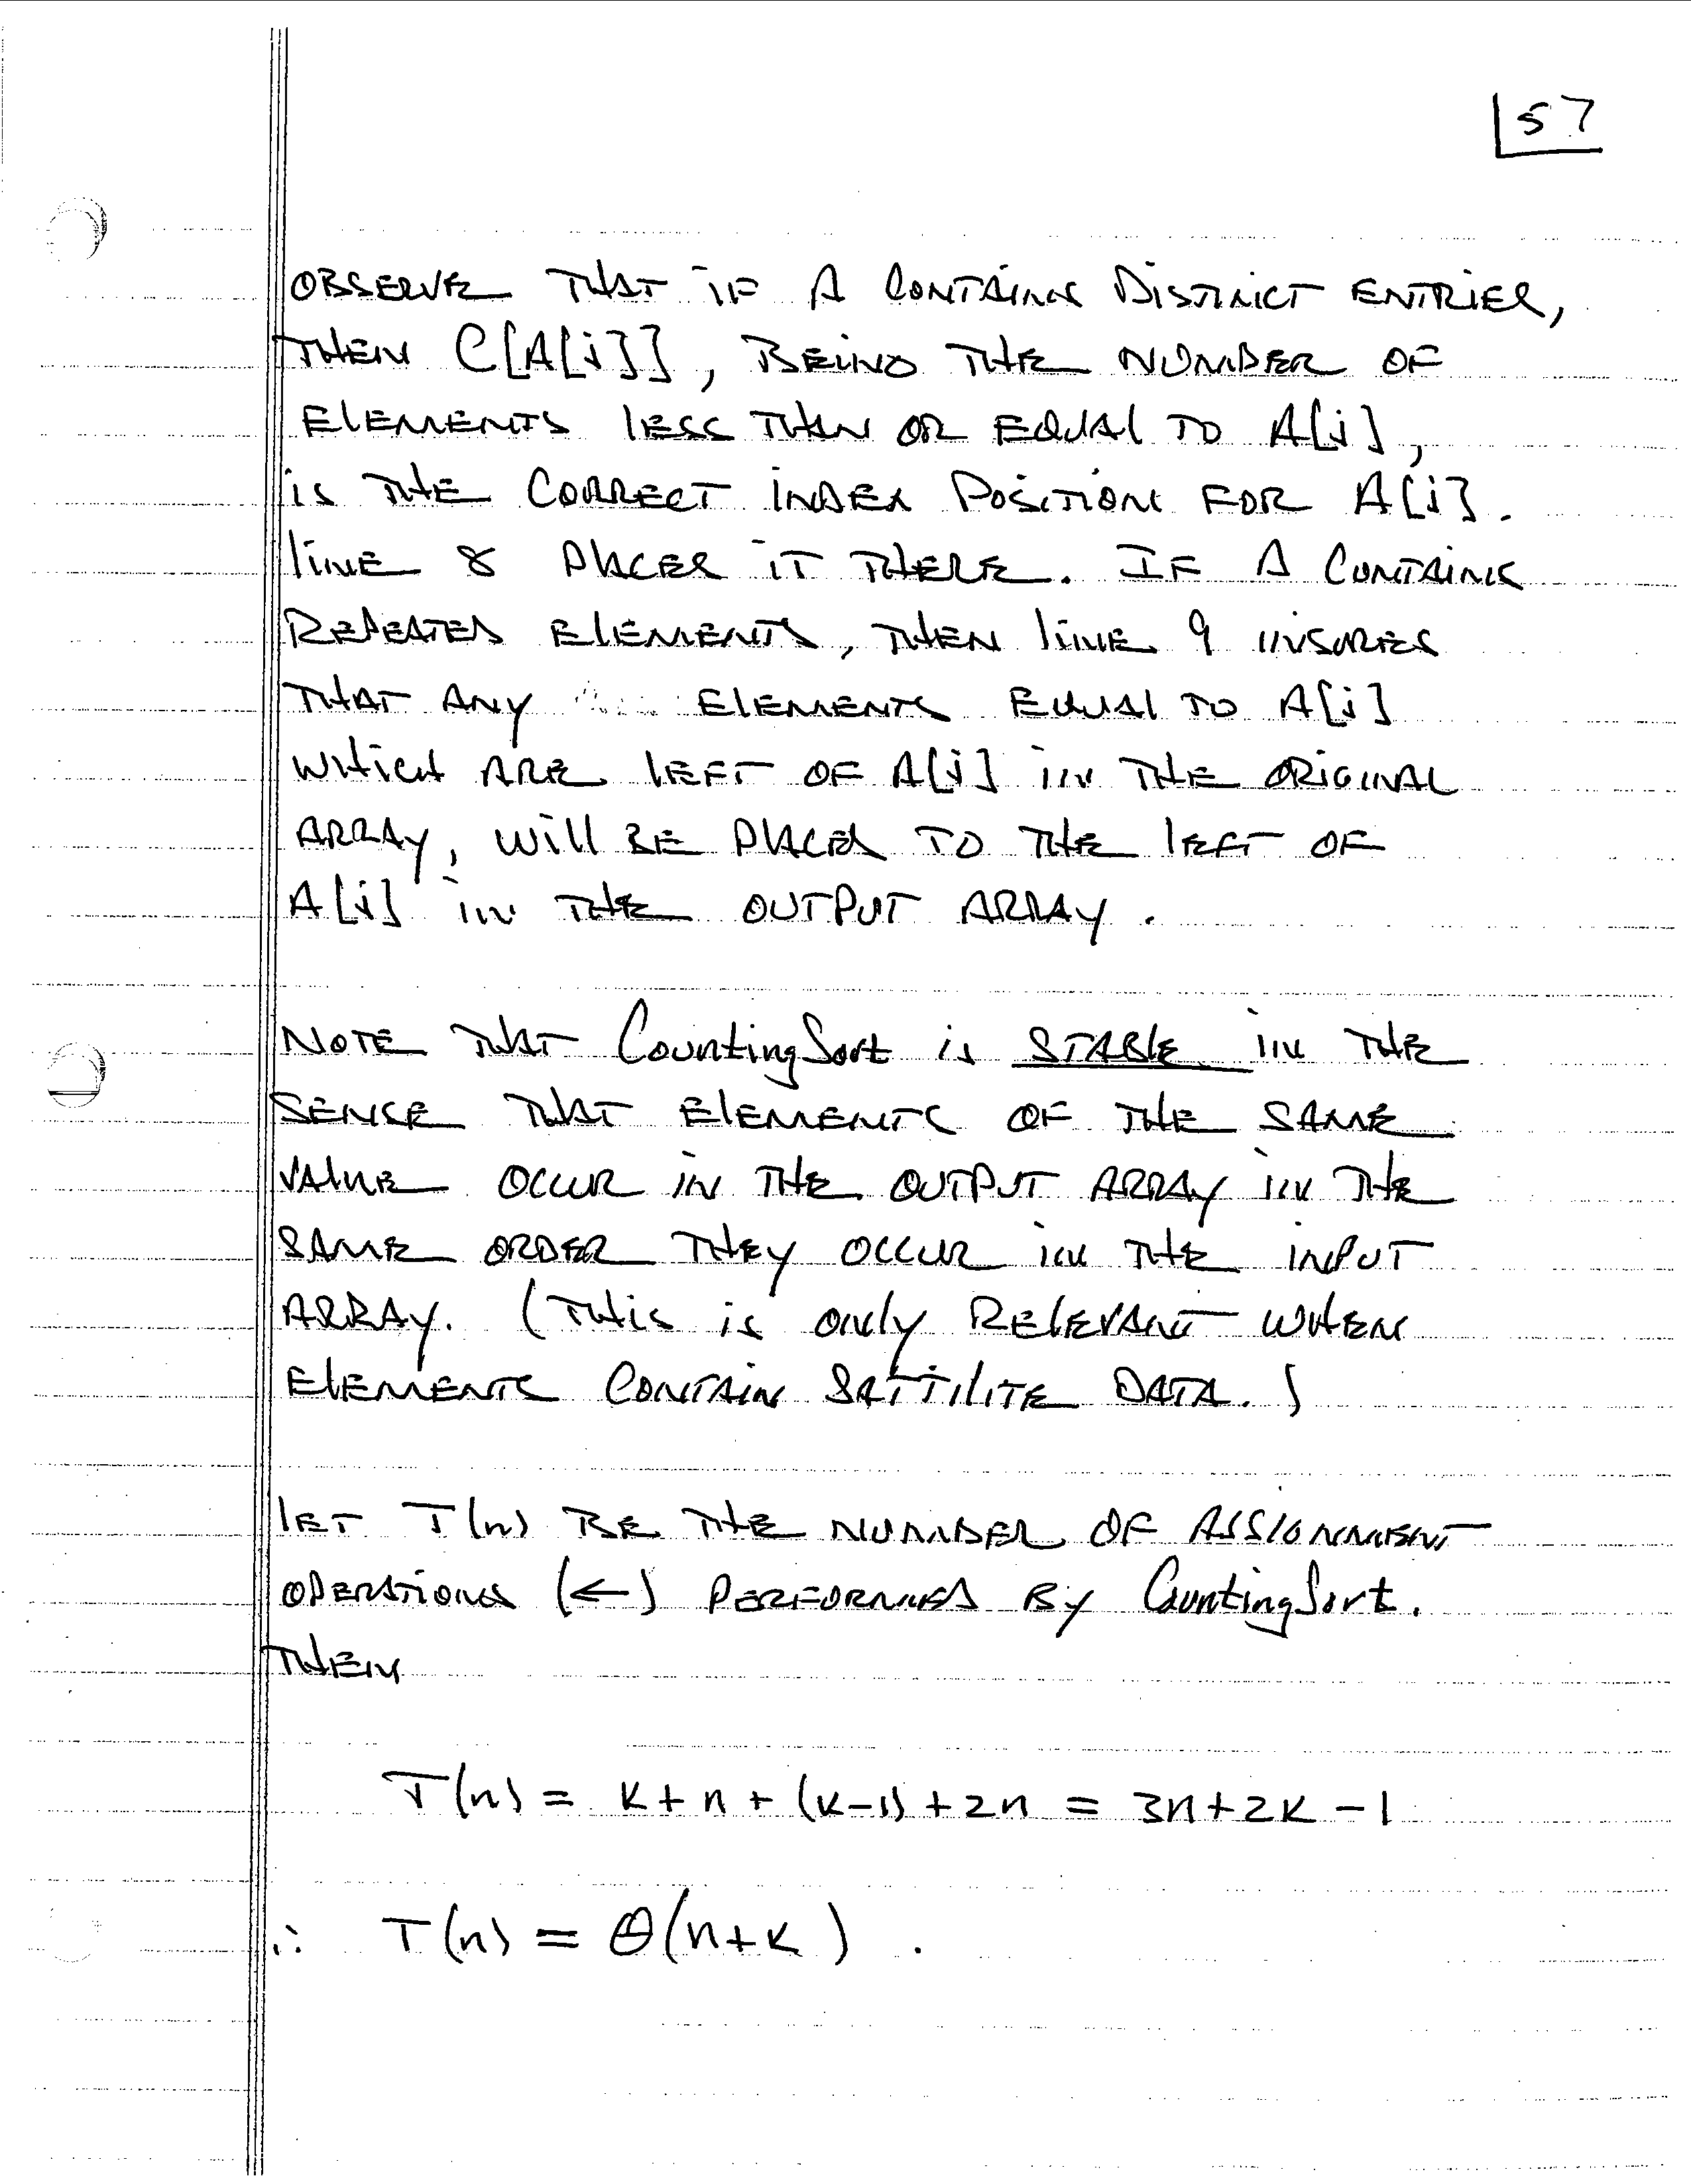 57
OBSERVE THAT IF A CONTAINS DISTINCT ENTRIES,
THEN C[A[j]], BEING THE NUMBER OF
ELEMENTS LESS THAN OR EQUAL TO A[j],
IS THE CORRECT INDEX POSITION FOR A[j].
LINE 8 PLACES IT THERE. IF A CONTAINS
REPEATED ELEMENTS, THEN LINE 9 INSURES
THAT ANY ELEMENTS EQUAL TO A[j]
WHICH ARE LEFT OF A[j] IN THE ORIGINAL
ARRAY, WILL BE PLACED TO THE LEFT OF
A[j] IN THE OUTPUT ARRAY.
NOTE THAT CountingSort is STABLE IN THE
SENSE THAT ELEMENTS OF THE SAME
VALUE OCCUR IN THE OUTPUT ARRAY IN THE
SAME ORDER THEY OCCUR IN THE INPUT
ARRAY. (THIS IS ONLY RELEVANT WHEN
ELEMENTS CONTAIN SATTILITE DATA.)
LET T(n) BE THE NUMBER OF ASSIGNMENT
OPERATIONS (←) PERFORMED BY CountingSort.
THEN
T(n) = k + n + (k-1) + 2n = 3n + 2k - 1
∴ T(n) = Θ(n+k).